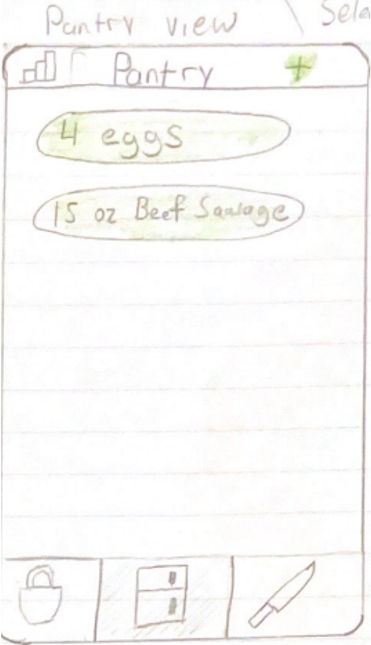 Pantry view
Pantry +
4 eggs
15 oz Beef Sausage